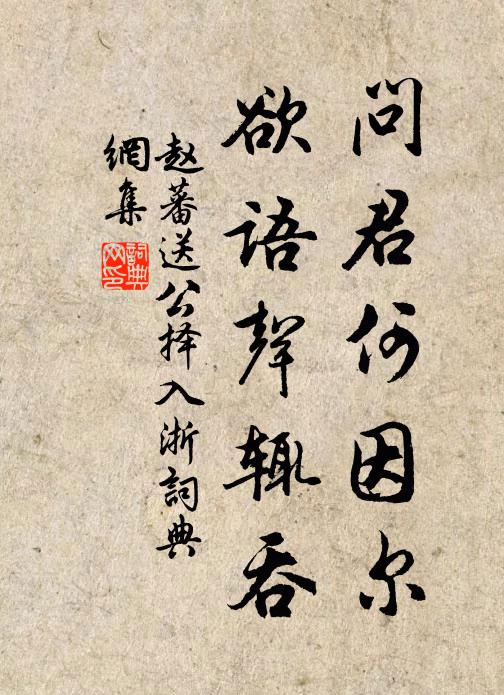 问君何因尔
欲语声辄吞
赵蕃送公择入浙词典
網集
詞典网印